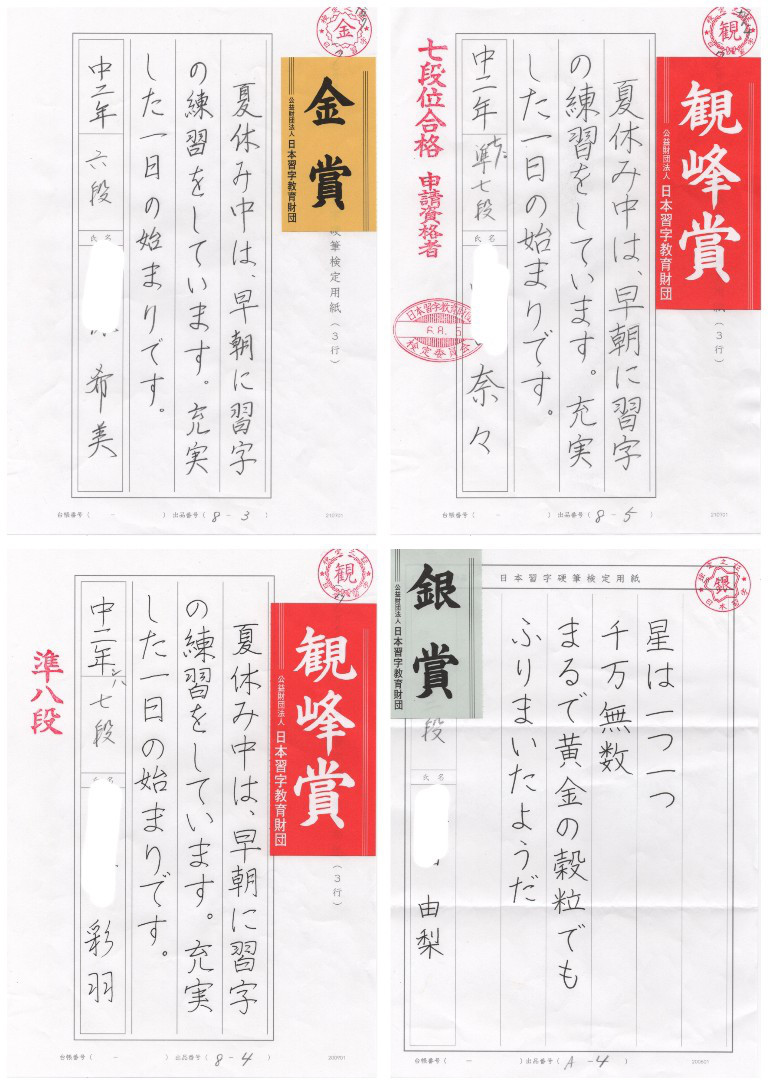 金
金賞
公益財団法人 日本習字教育財団
硬筆検定用紙(3行)
夏休み中は、早朝に習字
の練習をしています。充実
した一日の始まりです。
中二年 六段
氏名
希美
台帳番号( - ) 出品番号( 8-3 )
210101
観
観峰賞
公益財団法人 日本習字教育財団
(3行)
夏休み中は、早朝に習字
の練習をしています。充実
した一日の始まりです。
中二年 準七段
氏名
奈々
七段位合格 申請資格者
日本習字教育財団
6.8.5
検定委員会
台帳番号( - ) 出品番号( 8-5 )
210101
観
観峰賞
公益財団法人 日本習字教育財団
(3行)
夏休み中は、早朝に習字
の練習をしています。充実
した一日の始まりです。
中二年 七段
氏名
彩羽
準八段
台帳番号( - ) 出品番号( 8-4 )
銀
日本習字硬筆検定用紙
銀賞
公益財団法人 日本習字教育財団
星は一つ一つ
千万無数
まるで黄金の穀粒でも
ふりまいたようだ
段
氏名
由梨
台帳番号( - ) 出品番号( A-4 )